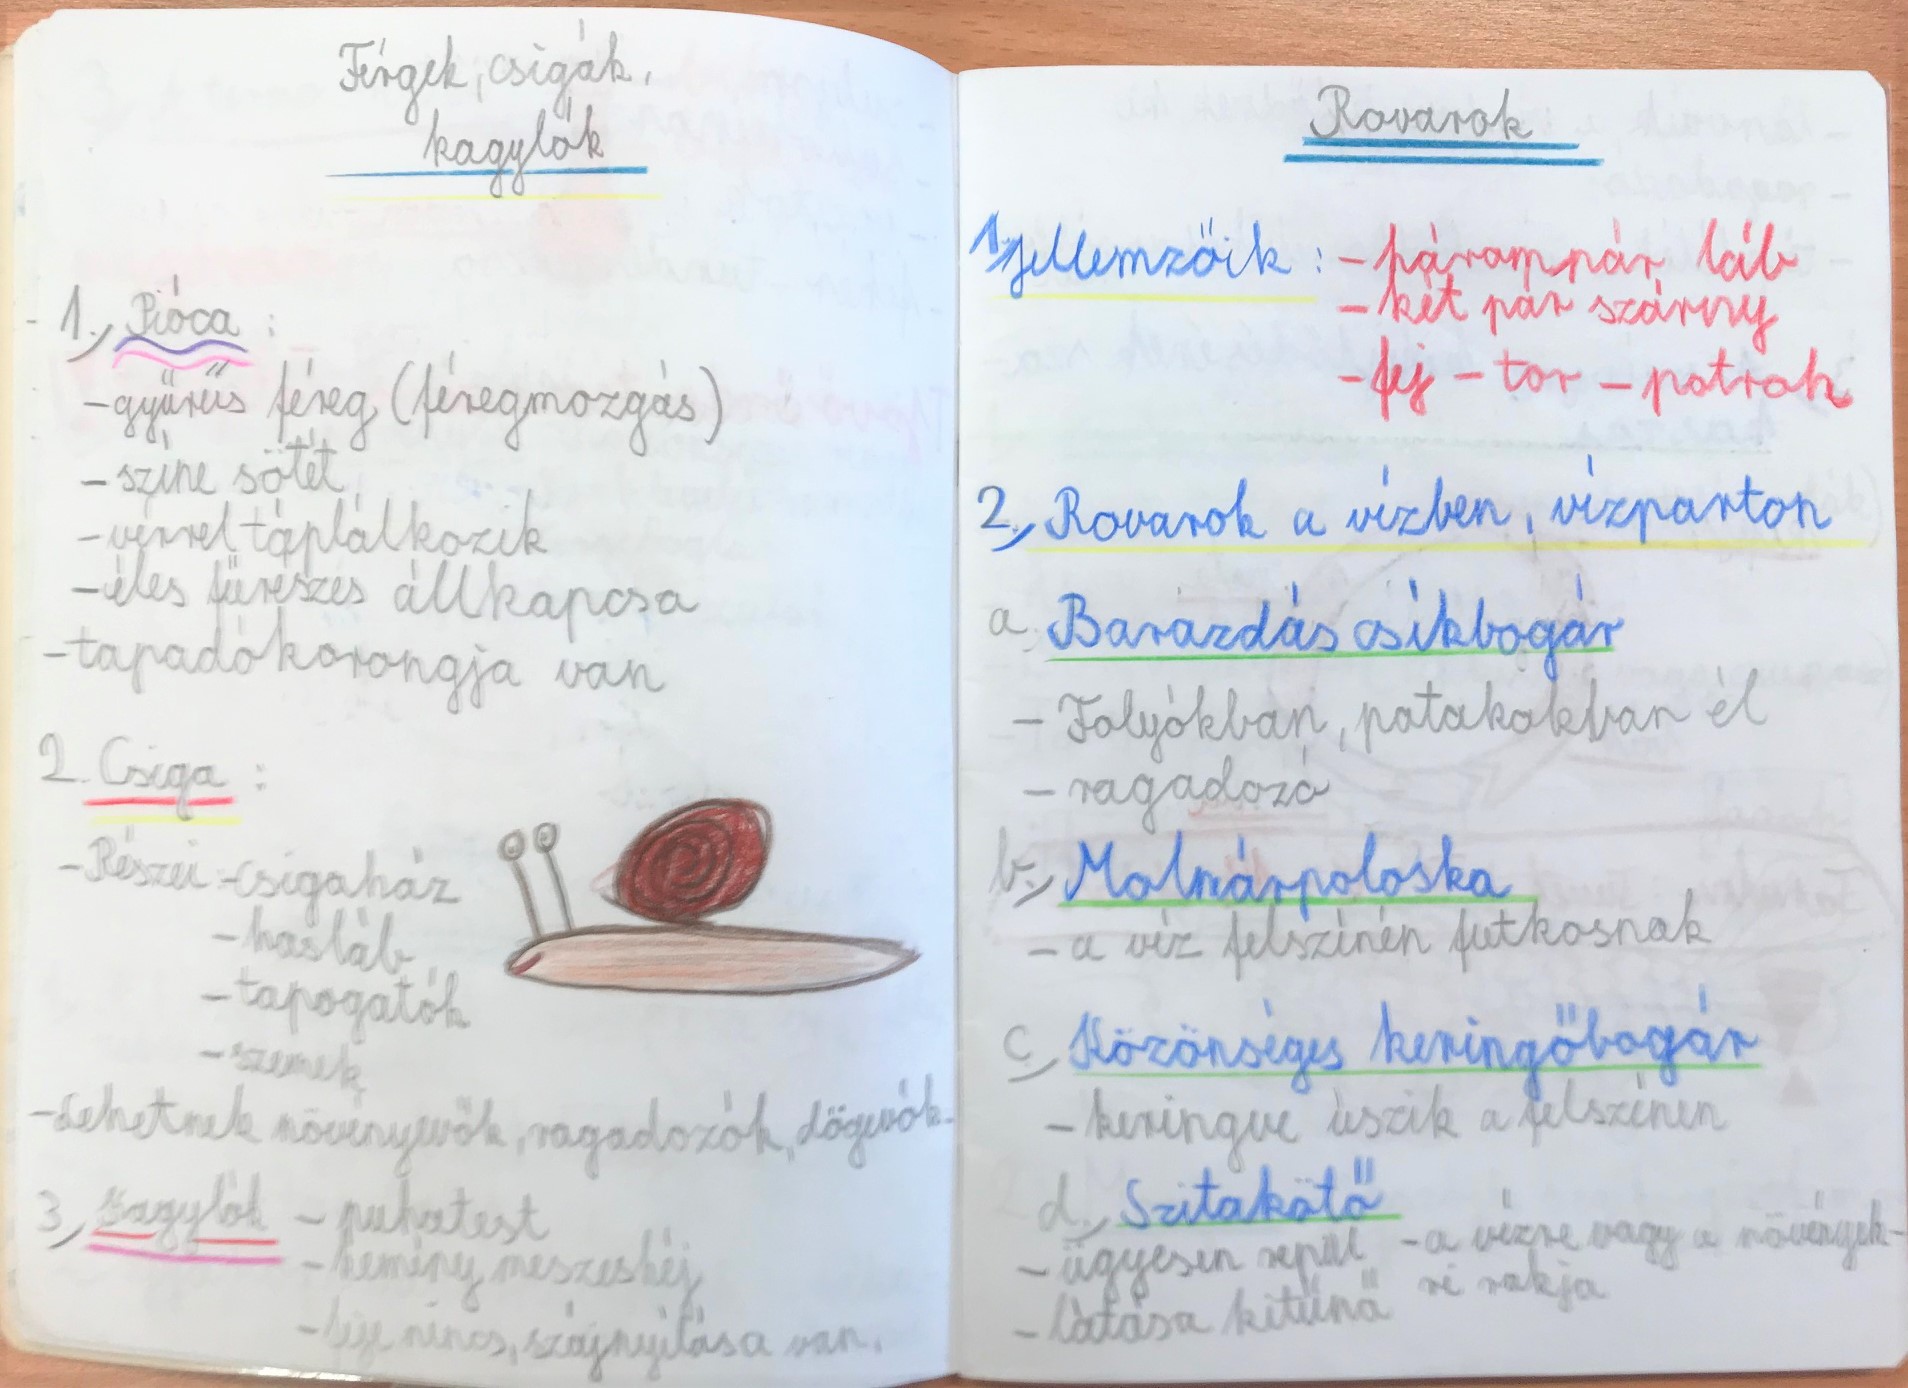 Férgek, csigák,
kagylók
1., Pióca:
-gyűrűs féreg (féregmozgás)
-színe sötét,
-vérrel táplálkozik
-éles fűrészes állkapcsa
-tapadókorongja van
2. Csiga:
-Részei -csigaház
-hasláb
-tapogatók
-szemek
-Lehetnek növényevők, ragadozók, dögevők.
3, Kagylók - puhatest
-kemény meszeshéj
-feje nincs, szájnyílása van.
Rovarok
1., Jellemzőik: -három pár láb
-két pár szárny
-fej -tor -potroh
2., Rovarok a vízben, vízparton
a. Barázdás csíkbogár
- Folyókban, patakokban él
- ragadozó
b., Molnárpoloska
-a víz felszínén futkosnak
c., Közönséges keringőbogár
-keringve úszik a felszínen
d., Szitakötő
-ügyesen repül -a vízre vagy a növények-
-látása kitűnő re rakja